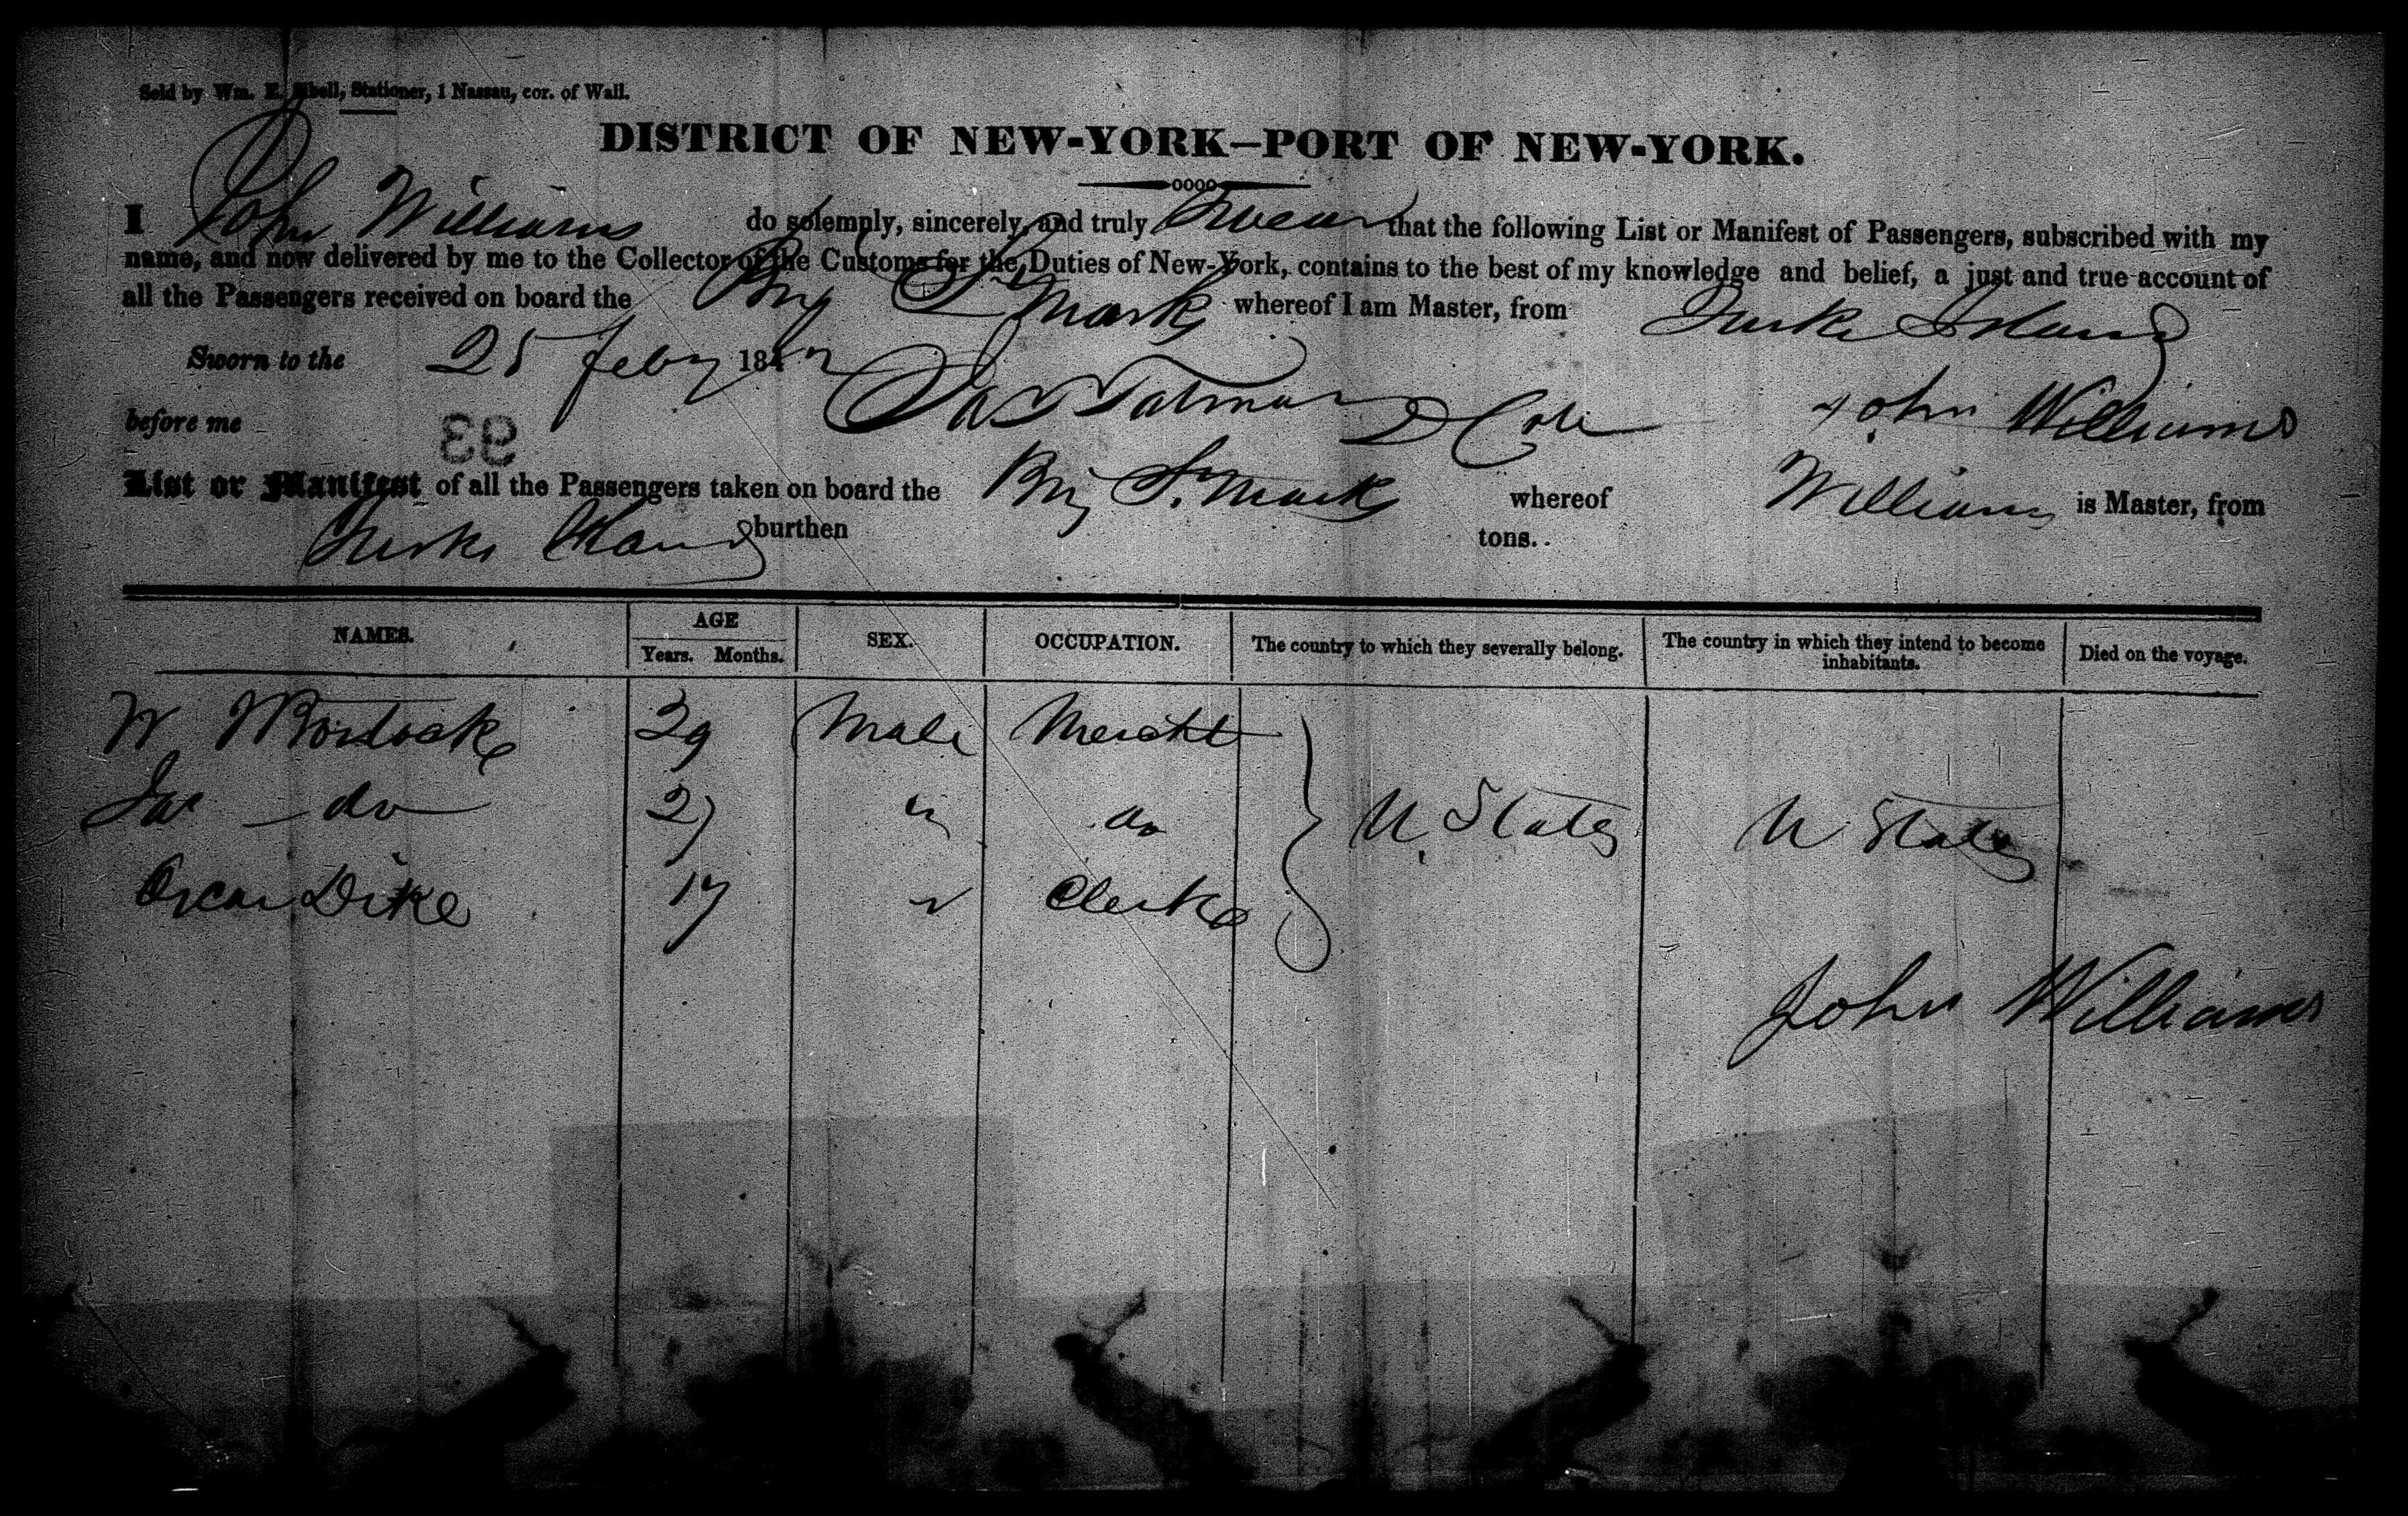 Sold by Wm. E. Sibell, Stationer, 1 Nassau, cor. of Wall.
DISTRICT OF NEW-YORK—PORT OF NEW-YORK.
I John Williams do solemnly, sincerely, and truly Swear that the following List or Manifest of Passengers, subscribed with my
name, and now delivered by me to the Collector of the Customs for the Duties of New-York, contains to the best of my knowledge and belief, a just and true account of
all the Passengers received on board the Brig St Mark whereof I am Master, from Turks Island
Sworn to the 25 Feby 184
before me John Williams
93
List or Manifest of all the Passengers taken on board the Brig St. Mark whereof Williams is Master, from
Turks Island burthen tons.
NAMES. AGE SEX. OCCUPATION. The country to which they severally belong. The country in which they intend to become inhabitants. Died on the voyage.
Years. Months.
W 29 Male Mercht
Jas do 27 " do U. States U States
Oscar Dike 17 " Clerk
John Williams